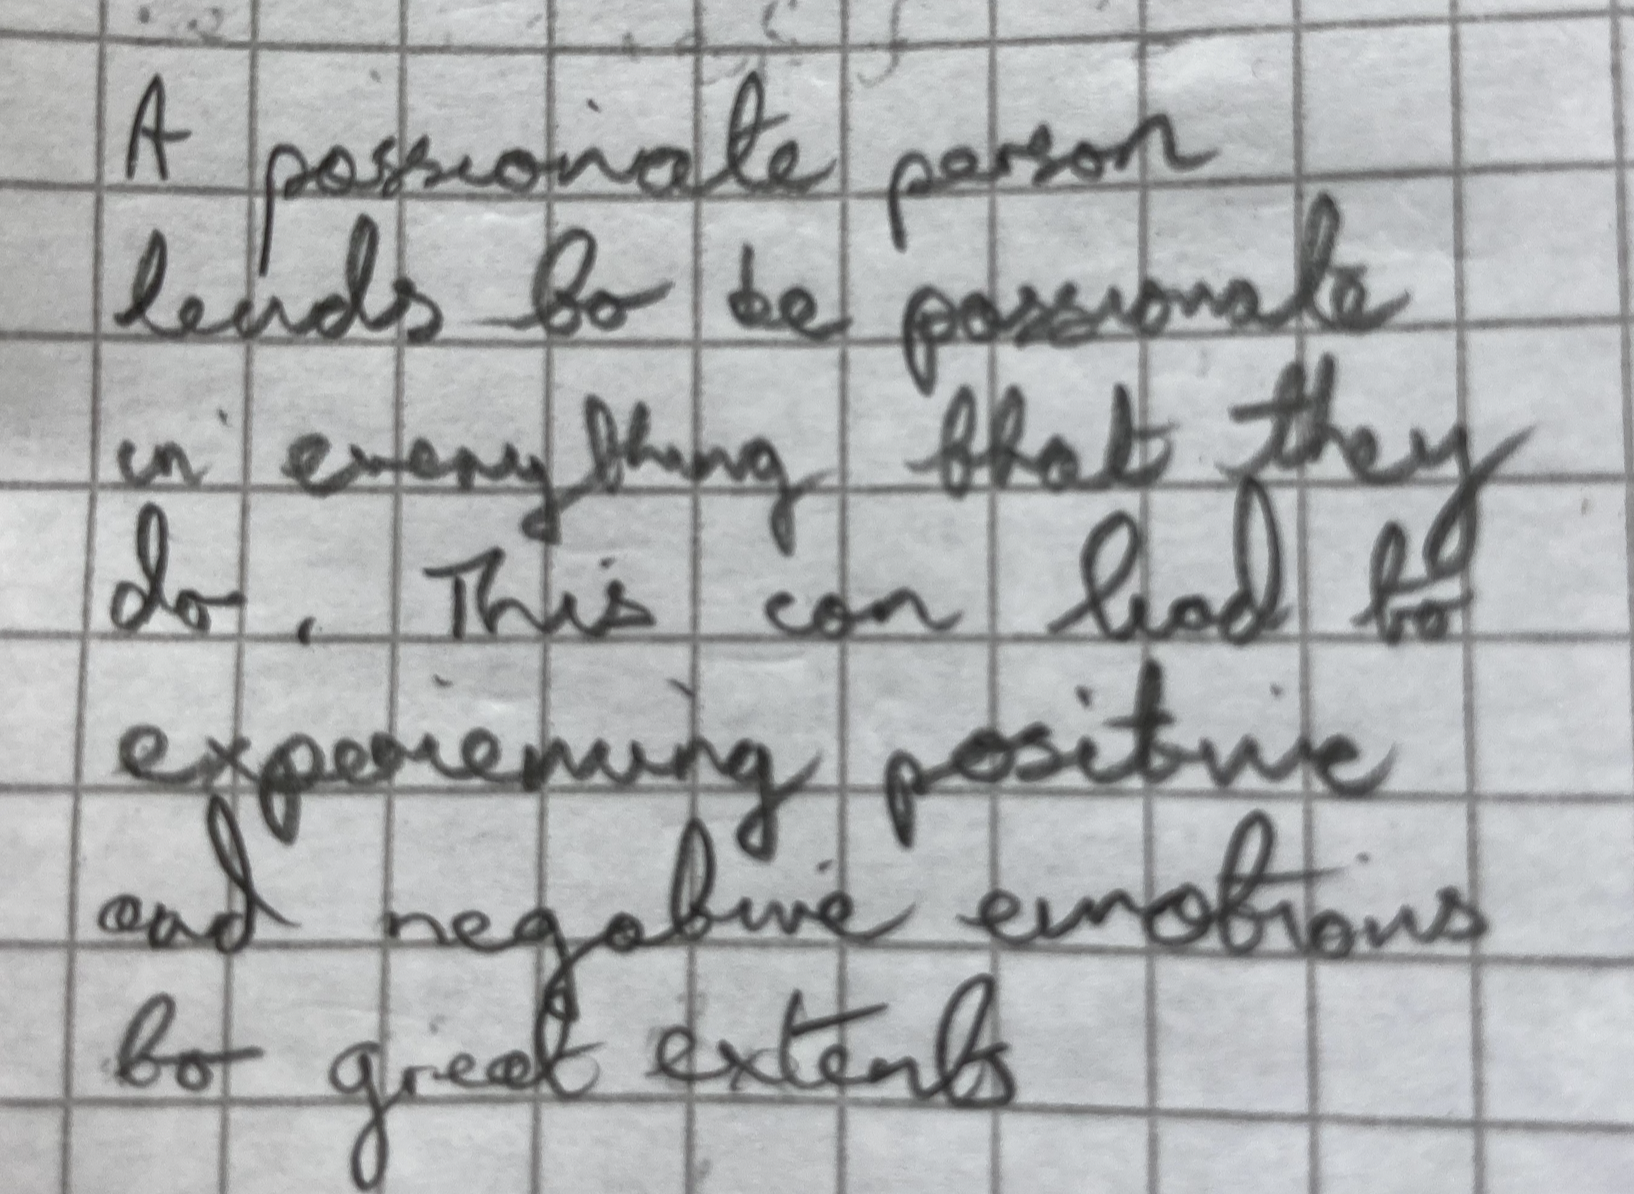 A passionate person
tends to be passionate
in everything that they
do. This can lead to
experiencing positive
and negative emotions
to great extents